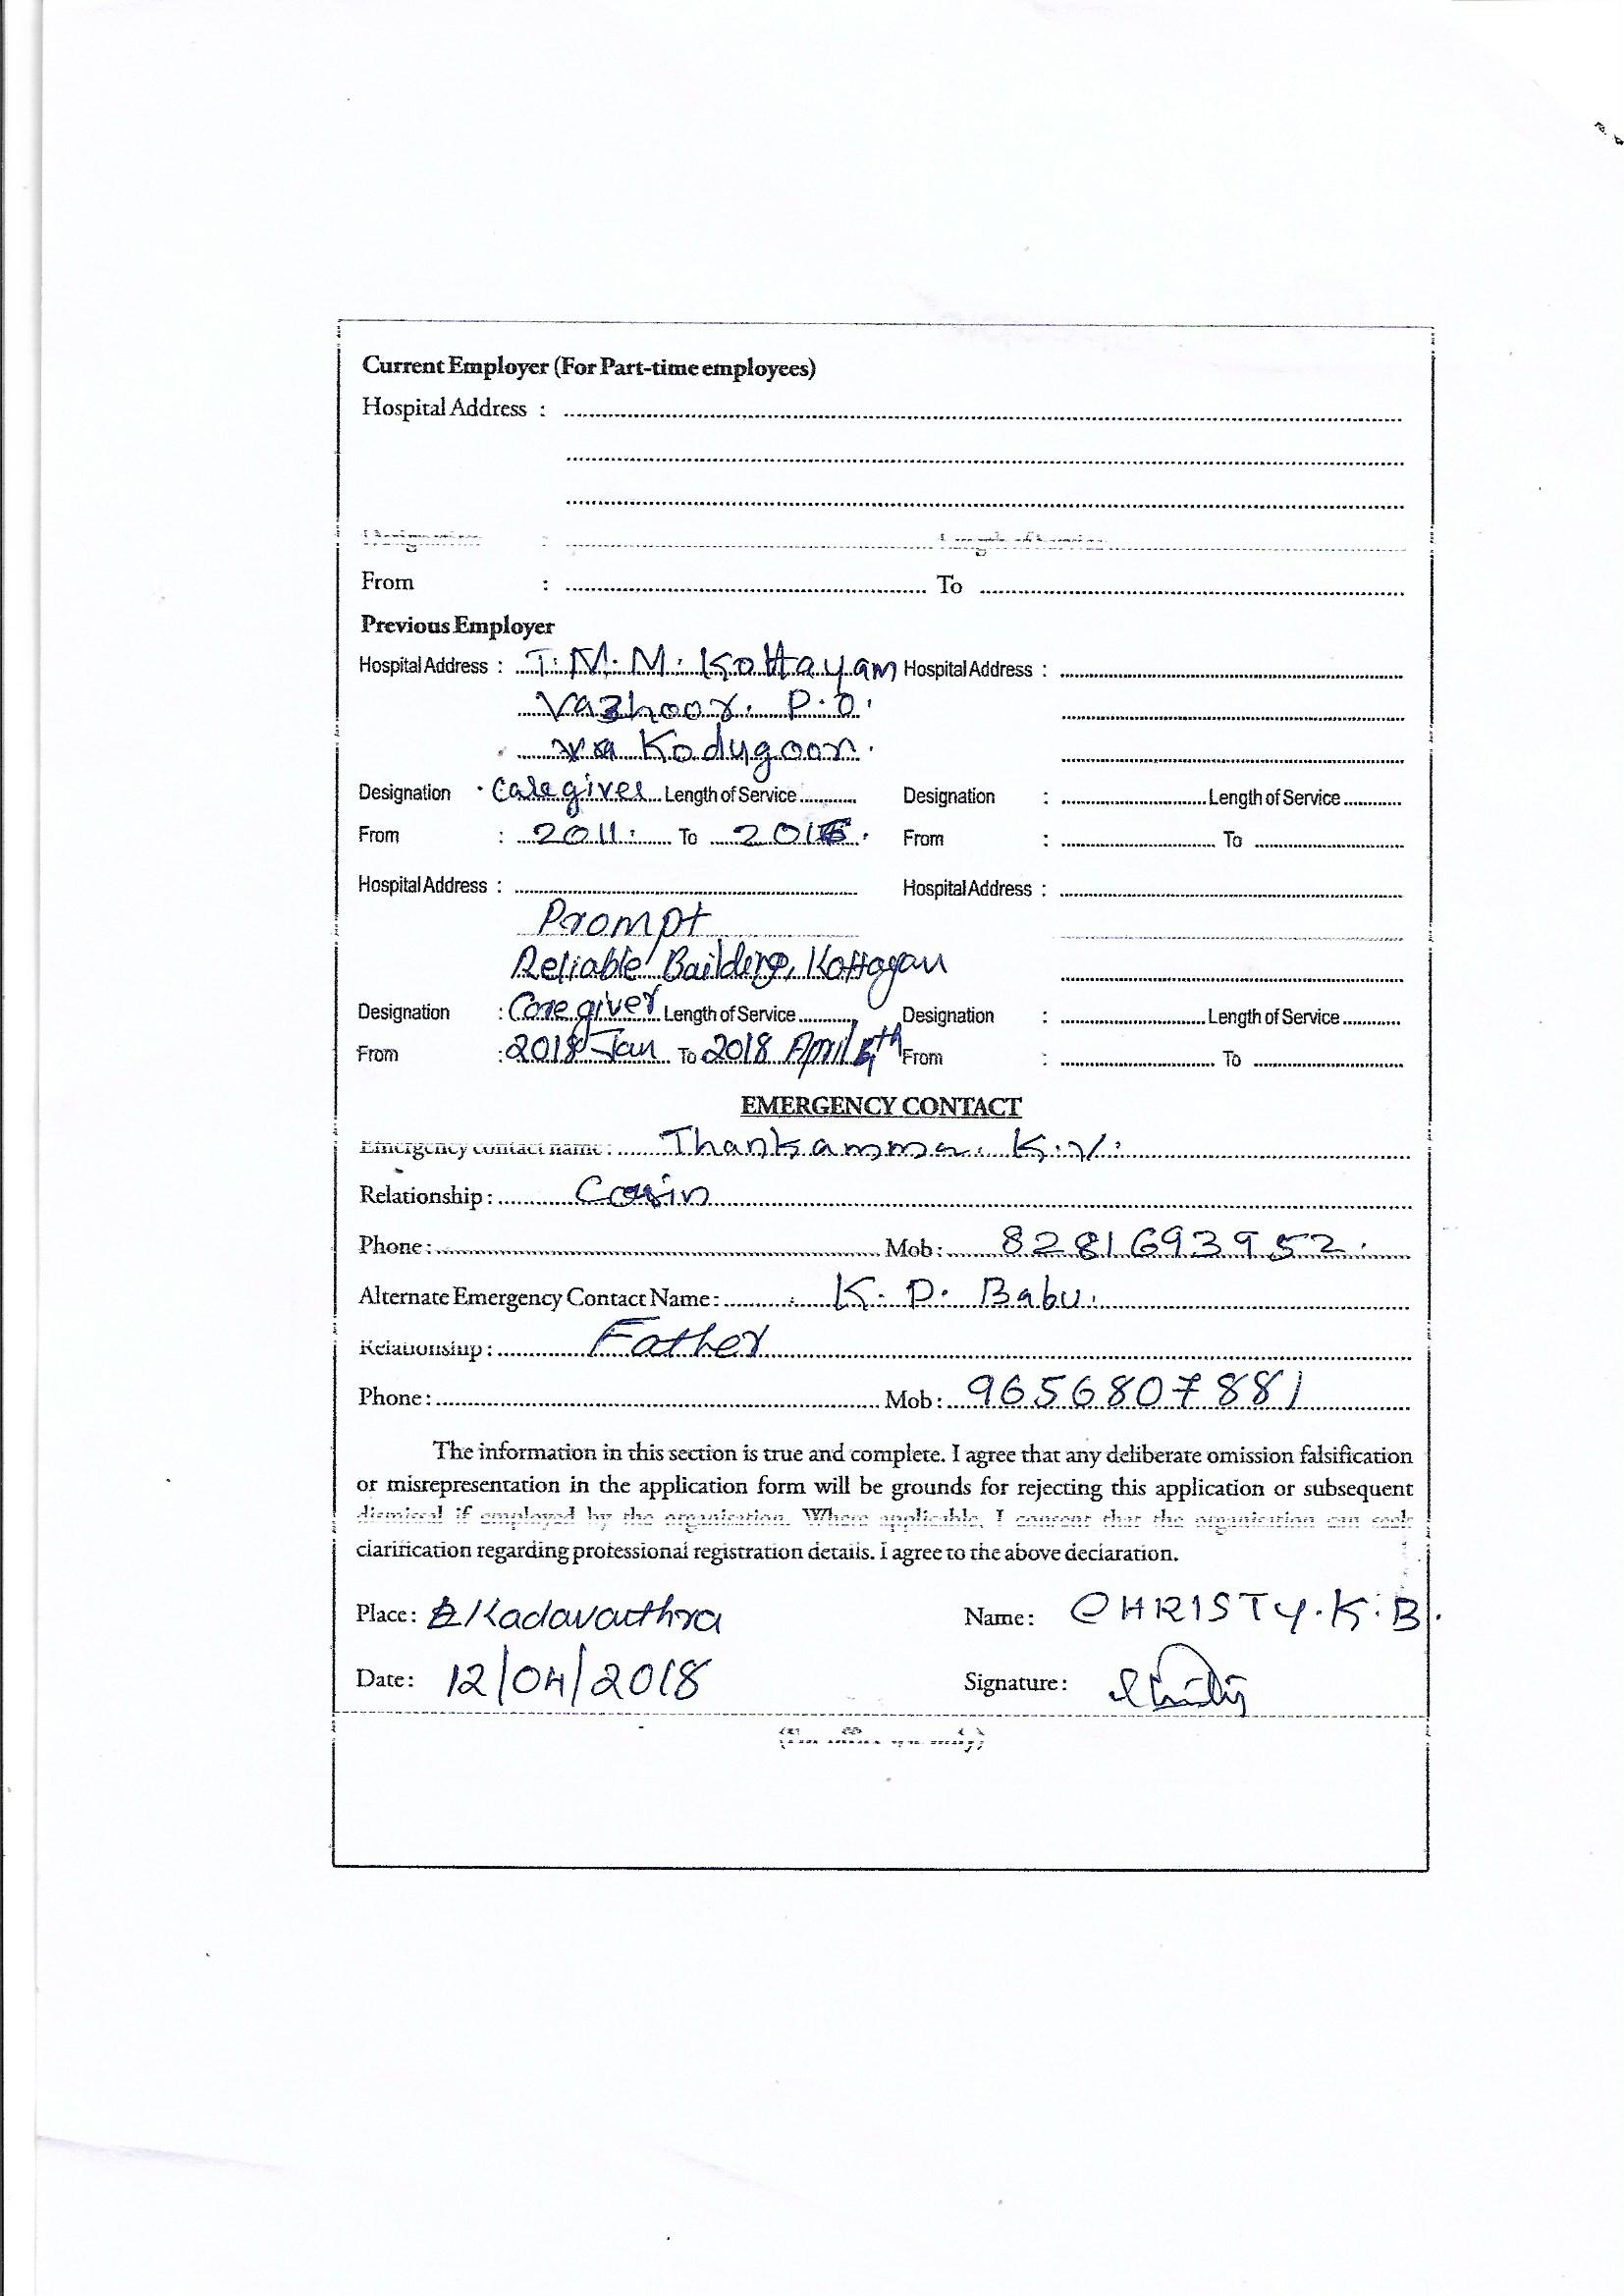 Current Employer (For Part-time employees)
Hospital Address :
Designation : Length of Service
From : To
Previous Employer
Hospital Address : T. M. M. Kottayam Hospital Address :
Vazhoor. P.O.
via Kodugoor.
Designation : Caregiver Length of Service Designation : Length of Service
From : 2011. To From : To
Hospital Address : Hospital Address :
Prompt
Reliable Building, Kottayam
Designation : Care giver Length of Service Designation : Length of Service
From : 2018 Jan To 2018 April From : To
EMERGENCY CONTACT
Emergency contact name : Thankamma. K.V.
Relationship : Cosin
Phone : Mob : 8281693952.
Alternate Emergency Contact Name : K. P. Babu.
Relationship : Father
Phone : Mob : 9656807881
The information in this section is true and complete. I agree that any deliberate omission falsification
or misrepresentation in the application form will be grounds for rejecting this application or subsequent
dismissal if employed by the organisation. Where applicable, I consent that the organisation can seek
clarification regarding professional registration details. I agree to the above declaration.
Place : Kadavanthra Name : CHRISTY. K. B.
Date : 12/04/2018 Signature :
(For office use only)